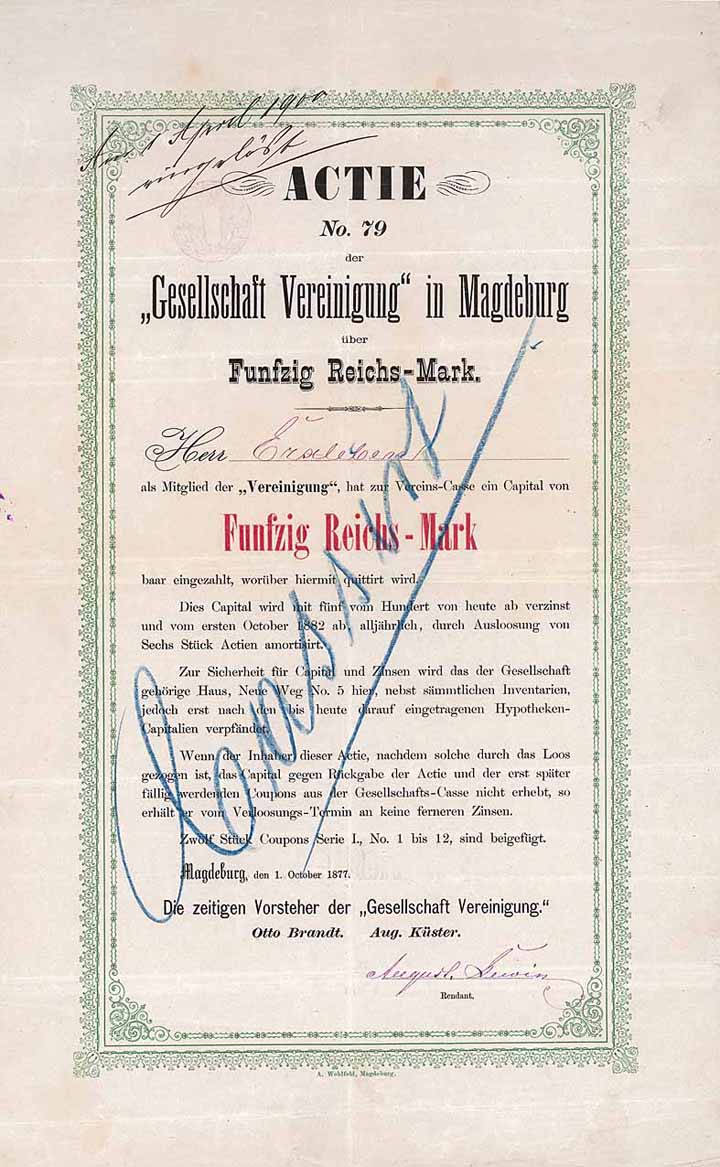 Am 1 April 1900
eingelöst
ACTIE
No. 79
der
„Gesellschaft Vereinigung“ in Magdeburg
über
Funfzig Reichs-Mark.
Herr Erxleben
als Mitglied der „Vereinigung“, hat zur Vereins-Casse ein Capital von
Funfzig Reichs-Mark
baar eingezahlt, worüber hiermit quittirt wird.
Dies Capital wird mit fünf vom Hundert von heute ab verzinst
und vom ersten October 1882 ab, alljährlich, durch Ausloosung von
Sechs Stück Actien amortisirt.
Zur Sicherheit für Capital und Zinsen wird das der Gesellschaft
gehörige Haus, Neue Weg No. 5 hier, nebst sämmtlichen Inventarien,
jedoch erst nach den bis heute darauf eingetragenen Hypotheken-
Capitalien verpfändet.
Wenn der Inhaber dieser Actie, nachdem solche durch das Loos
gezogen ist, das Capital gegen Rückgabe der Actie und der erst später
fällig werdenden Coupons aus der Gesellschafts-Casse nicht erhebt, so
erhält er vom Verloosungs-Termin an keine ferneren Zinsen.
Zwölf Stück Coupons Serie I., No. 1 bis 12, sind beigefügt.
Magdeburg, den 1. October 1877.
Die zeitigen Vorsteher der „Gesellschaft Vereinigung.“
Otto Brandt. Aug. Küster.
August
Rendant.
A. Wohlfeld, Magdeburg.